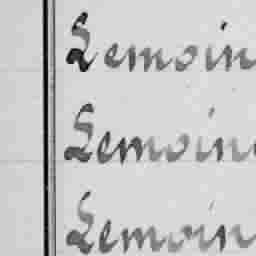 Lemoin
Lemoine
Lemoin